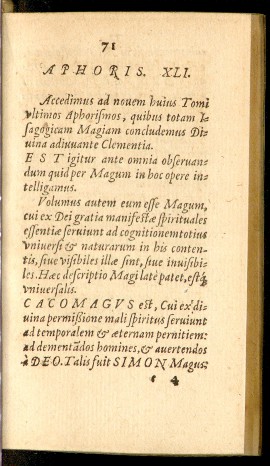 71
APHORIS. XLI.
Accedimus ad nouem huius Tomi
vltimos Aphorismos, quibus totam I-
sagogicam Magiam concludemus Di-
uina adiuuante Clementia.
EST igitur ante omnia obseruan-
dum quid per Magum in hoc opere in-
telligamus.
Volumus autem eum esse Magum,
cui ex Dei gratia manifestæ spirituales
essentiæ seruiunt ad cognitionem totius
vniuersi & naturarum in his conten-
tis, siue visibiles illæ sint, siue inuisibi-
les. Hæc descriptio Magi latè patet, estq́;
vniuersalis.
CACOMAGVS est, Cui ex di-
uina permißione mali spiritus seruiunt
ad temporalem & æternam pernitiem:
ad dementãdos homines, & auertendos
à DEO. Talis fuit SIMON Magus:
e 4